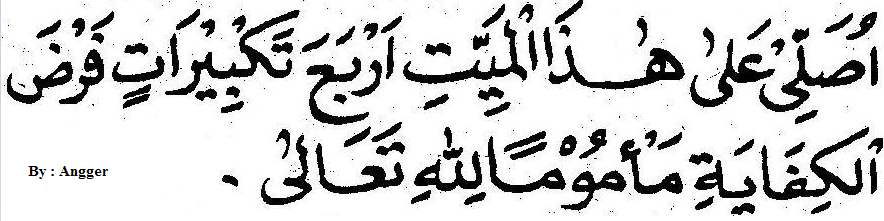 اُصَلِّىْ عَلٰى هٰـذَاالْمَيِّتِ اَرْبَعَ تَكْبِيْرَاتٍ فَرْضَ
الْكِفَايَةِ مَأْمُوْمًا لِلّٰهِ تَعَالٰى .
By : Angger